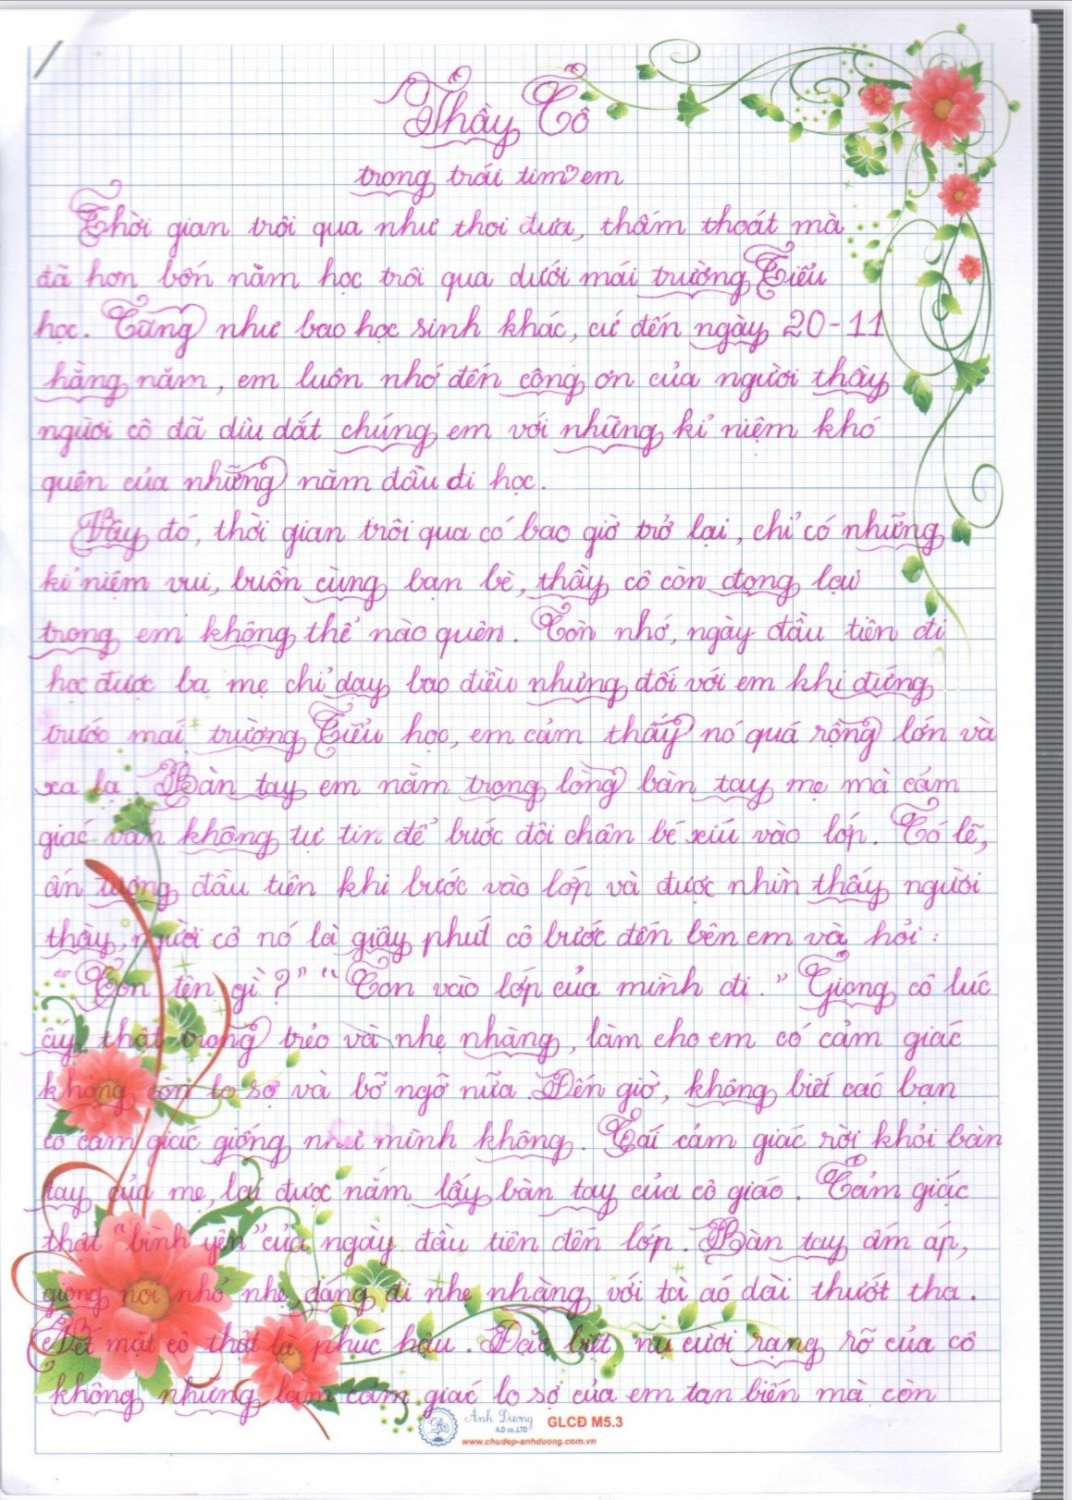 Thầy Cô
trong trái tim em
Thời gian trôi qua như thoi đưa, thấm thoát mà
đã hơn bốn năm học trôi qua dưới mái trường Tiểu
học. Cũng như bao học sinh khác, cứ đến ngày 20-11
hằng năm, em luôn nhớ đến công ơn của người thầy
người cô đã dìu dắt chúng em với những kỉ niệm khó
quên của những năm đầu đi học.
Vậy đó, thời gian trôi qua có bao giờ trở lại, chỉ có những
kỉ niệm vui, buồn cùng bạn bè, thầy cô còn đọng lại
trong em không thể nào quên. Còn nhớ, ngày đầu tiên đi
học được ba mẹ chỉ dạy bao điều nhưng đối với em khi đứng
trước mái trường Tiểu học, em cảm thấy nó quá rộng lớn và
xa lạ. Bàn tay em nằm trong lòng bàn tay mẹ mà cảm
giác vẫn không tự tin để bước đôi chân bé xíu vào lớp. Có lẽ,
ấn tượng đầu tiên khi bước vào lớp và được nhìn thấy người
thầy, người cô nó là giây phút cô bước đến bên em và hỏi:
“Con tên gì?” “Con vào lớp của mình đi.” Giọng cô lúc
ấy thật trong trẻo và nhẹ nhàng, làm cho em có cảm giác
không còn lo sợ và bỡ ngỡ nữa. Đến giờ, không biết các bạn
có cảm giác giống như mình không. Cái cảm giác rời khỏi bàn
tay của mẹ, lại được nắm lấy bàn tay của cô giáo. Cảm giác
thật “bình yên” của ngày đầu tiên đến lớp. Bàn tay ấm áp,
giọng nói nhỏ nhẹ, dáng đi nhẹ nhàng với tà áo dài thướt tha.
Nét mặt cô thật là phúc hậu. Đặc biệt nụ cười rạng rỡ của cô
không những làm cảm giác lo sợ của em tan biến mà còn
Ánh Dương
A.D co.,LTD
GLCĐ M5.3
www.chudep-anhduong.com.vn